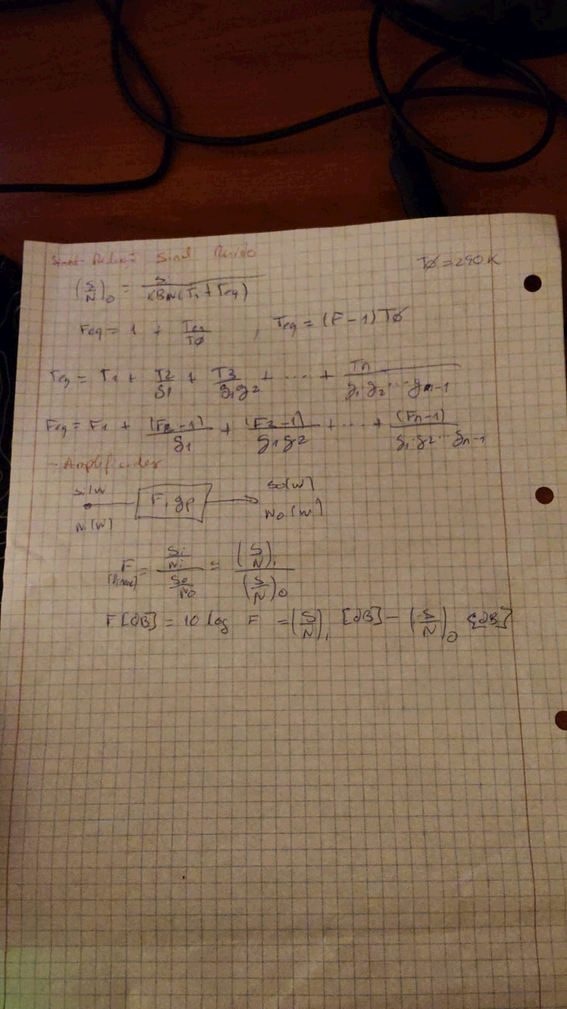 Sinal Ruido
TØ = 290 K
(S/N)₀ = S / KBN(T₁ + Teq)
Feq = 1 + Teq/TØ , Teq = (F - 1) TØ
Teq = T1 + T2/g1 + T3/g1g2 + .... + Tn/g1·g2....gn-1
Feq = F1 + (F2-1)/g1 + (F3-1)/g1g2 + ... + (Fn-1)/g1·g2...gn-1
- Amplificador
Si[W] So[W]
F, gp
Ni[W] No[W]
F = (Si/Ni)/(So/No) = (S/N)i/(S/N)o
F[dB] = 10 log F = (S/N)i [dB] - (S/N)o [dB]